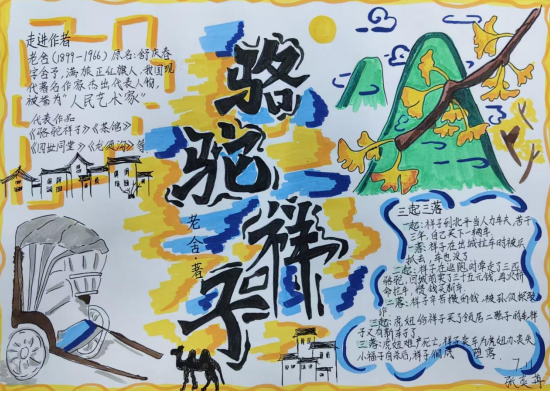 走进作者
老舍(1899-1966) 原名:舒庆春
字舍予,满族正红旗人,我国现
代著名作家杰出代表人物,
被誉为“人民艺术家”
代表作如
《骆驼祥子》《茶馆》
《四世同堂》《龙须沟》等
骆驼祥子
老舍·著
三起三落
一起:祥子到北平当人力车夫,苦干
三年,自己买下一辆车.
一落:祥子在出城拉车时被兵
抓去,车也没了
二起:祥子在逃跑时牵走了三匹
骆驼,回城前卖了三十五元钱,再次拼
命拉车,攒钱买新车.
二落:祥子辛苦攒的钱,被孙侦探敲
诈
三起:虎妞给祥子买了邻居二强子的车,祥
子又有新车了.
三落:虎妞难产死亡,祥子卖车为虎妞办丧失,
小福子自杀后,祥子彻底堕落.
7.11